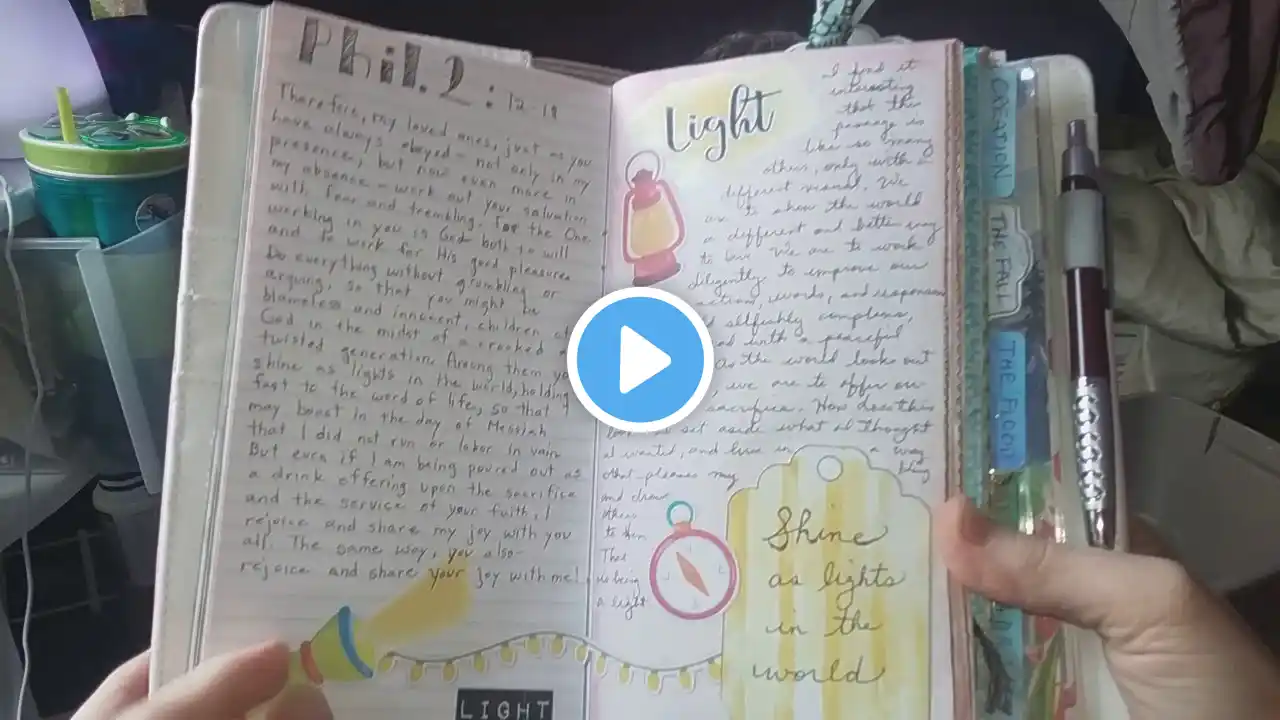 Phil. 2: 12-18
Therefore, my loved ones, just as you
have always obeyed - not only in my
presence, but now even more in
my absence - work out your salvation
with fear and trembling. For the One
working in you is God both to will
and to work for His good pleasure
Do everything without grumbling or
arguing, so that you might be
blameless and innocent, children of
God in the midst of a crooked
twisted generation. Among them you
shine as lights in the world, holding
fast to the word of life, so that I
may boast in the day of Messiah
that I did not run or labor in vain
But even if I am being poured out as
a drink offering upon the sacrifice
and the service of your faith, I
rejoice and share my joy with you
all. The same way, you also-
rejoice and share your joy with me!
LIGHT
Light
I find it
interesting
that this
passage is
like so many
others, only with a
different visual. We
are to show the world
a different and better way
to live. We are to work
diligently to improve our
actions, words, and responses
selfishly complains,
with a peaceful
as the world looks out
we are to offer our
sacrifice. How does this
set aside what I thought
I wanted, and live in a way
that pleases my King
and draw
others
to Him
That
is being
a light
Shine
as lights
in the
world
CREATION
THE FALL
THE FLOOD